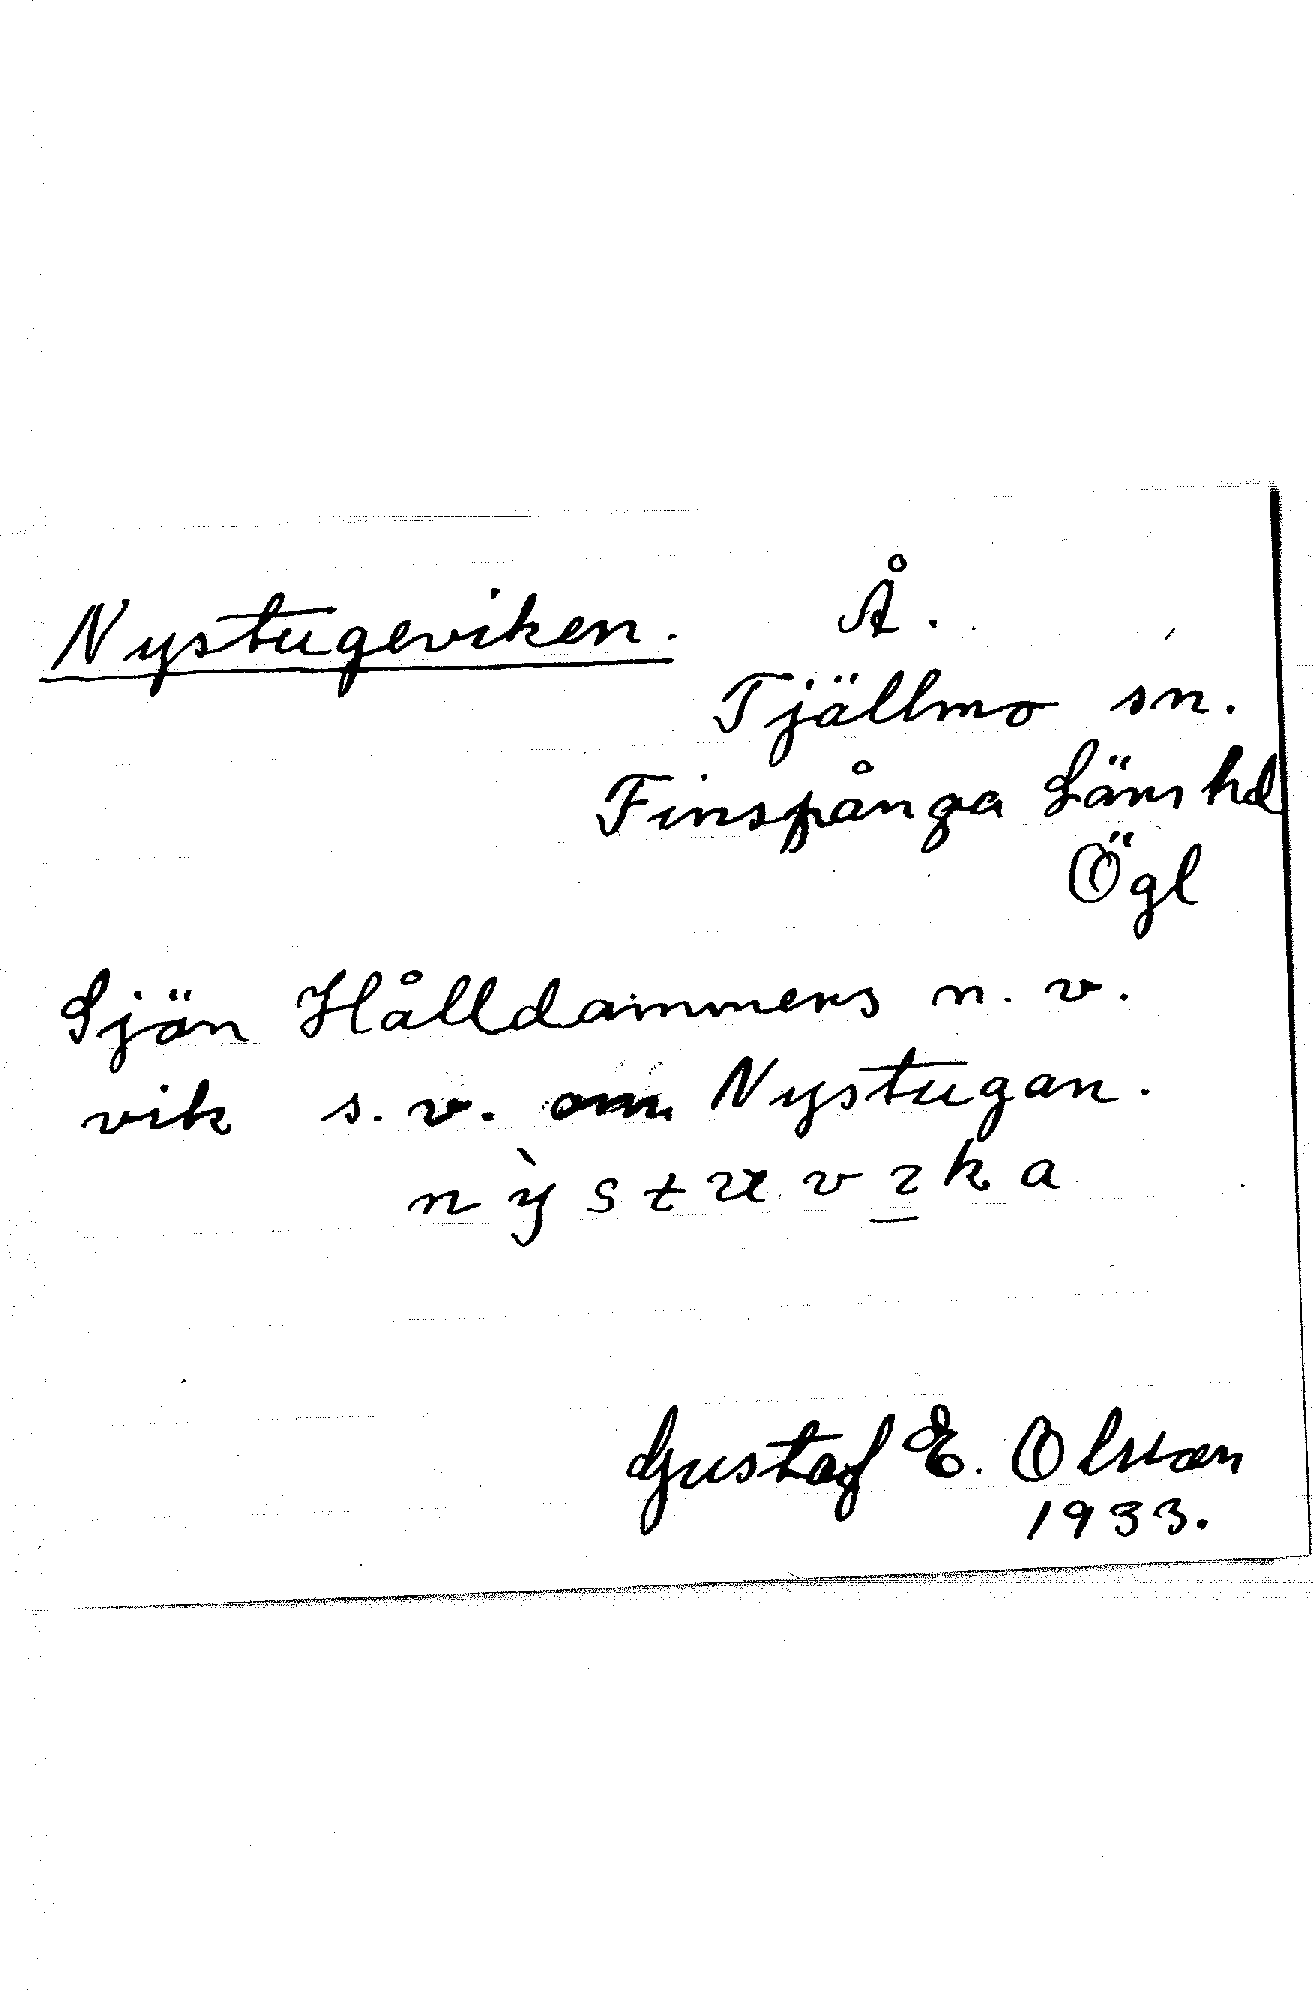 Nystugeviken. Å.
Tjällmo sn.
Finspånga Läns hd
Ögl
Sjön Hålldammens n. v.
vik s. v. om Nystugan.
nỳstuvıka
Gustaf E. Olsson
1933.